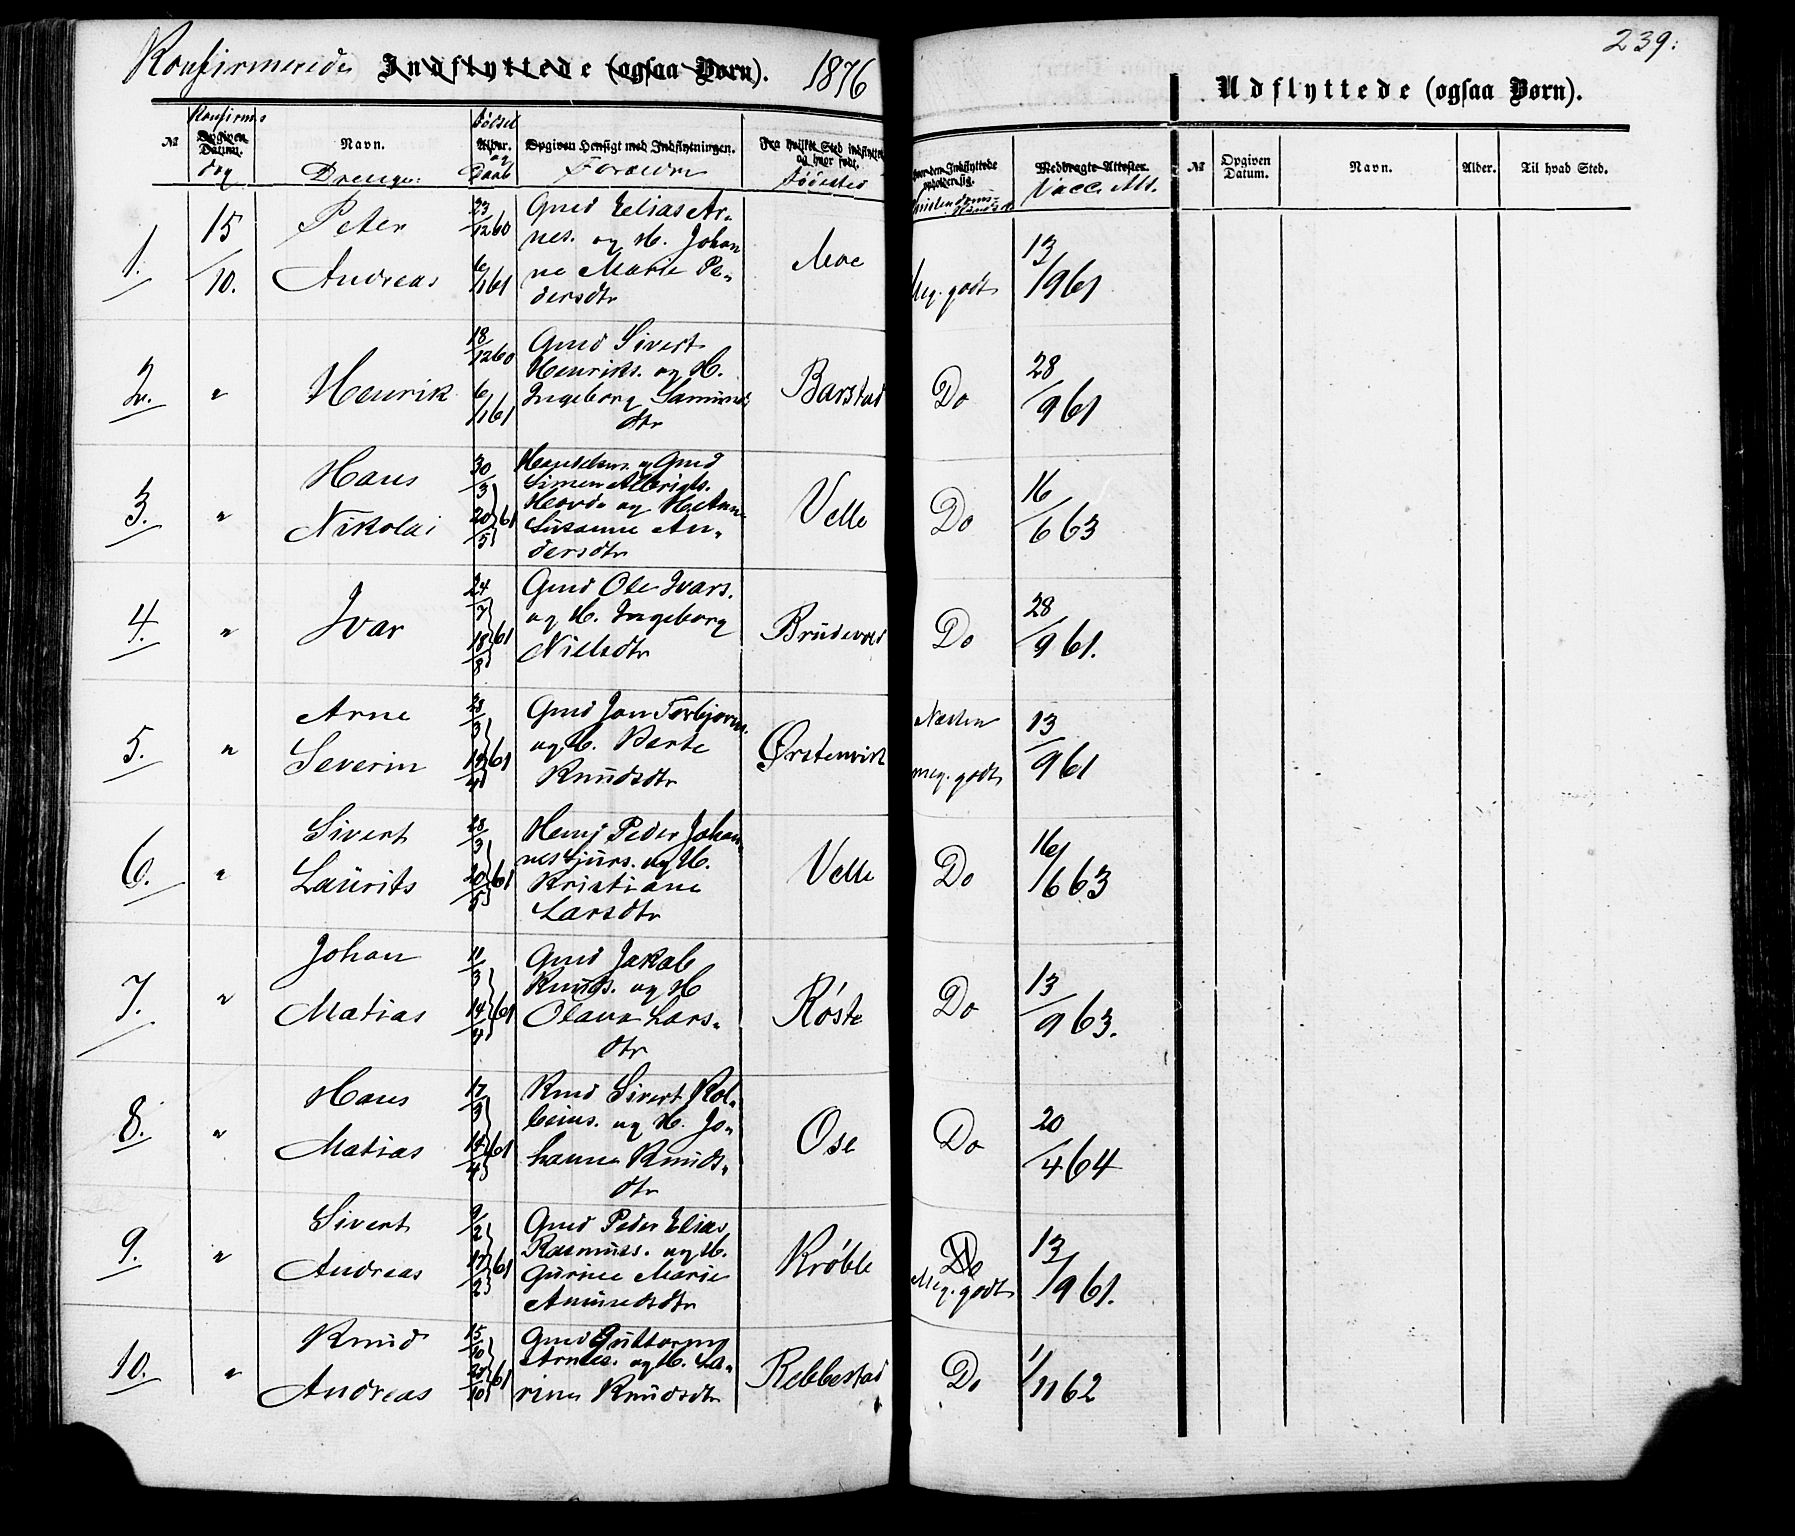 239.
Konfirmerede Indflyttede (ogsaa Børn). 1876
Udflyttede (ogsaa Børn).
№ Opgiven Datum. Konfirm.s dag
Navn. Drenge.
Alder. Fødsel og Daab
Opgiven Hensigt med Indflytningen. Forældre
Fra hvilket Sted indflyttet og hvor født. Fødested
Hvor den Indflyttede opholder sig.
Medbragte Attester. Vacc. Att.
№ Opgiven Datum. Navn. Alder. Til hvad Sted.
1. 15/10. Peter Andreas 23/12 60 6/1 61
Gmd Elias Ar-
nes. og H. Johan
ne Marie Pe-
dersdtr
Moe Meg. godt 13/9 61
2. " Henrik 18/12 60 6/1 61
Gmd Sivert
Henriks. og H.
Ingeborg
dtr
Barstad Do 28/9 61
3. " Hans Nikolai 30/3 20/5 61
og Gmd
Simen
og
Susanne An-
dersdtr
Velle Do 16/6 63
4. " Ivar 24/7 18/8 61
Gmd Ole Ivars.
og H. Ingeborg
Nielsdtr
Brudevold Do 28/9 61.
5. " Arne Severin 61
Gmd Jon Torbjørns.
og H. Berte
Knudsdtr
Ørstenvik Næsten meg. godt 13/9 61
6. " Sivert Laurits 28/3 20/5 61
Peder Johan
nes og H.
Kristiane
Larsdtr
Velle Do 16/6 63
7. " Johan Matias 11/3 14/4 61
Gmd Jakob
Knuds. og H
Olava Lars-
dtr
Røste Do 13/9 63.
8. " Hans Matias 17/3 14/4 61
Sivert Kol-
beins. og H. Jo-
hanne Knuds-
dtr
Ose Do 20/4 64
9. " Sivert Andreas 9/2 17/2 61
Gmd Peder Elias
Rasmuss. og H.
Gurine Marie
Amundsdtr
Krøble Do Meg. godt 13/9 61.
10. " Knud Andreas 15/10 61
Gmd Guttorm
Arnes. og H. La-
rine Knudsdtr
Rebbestad Do 1/11 62